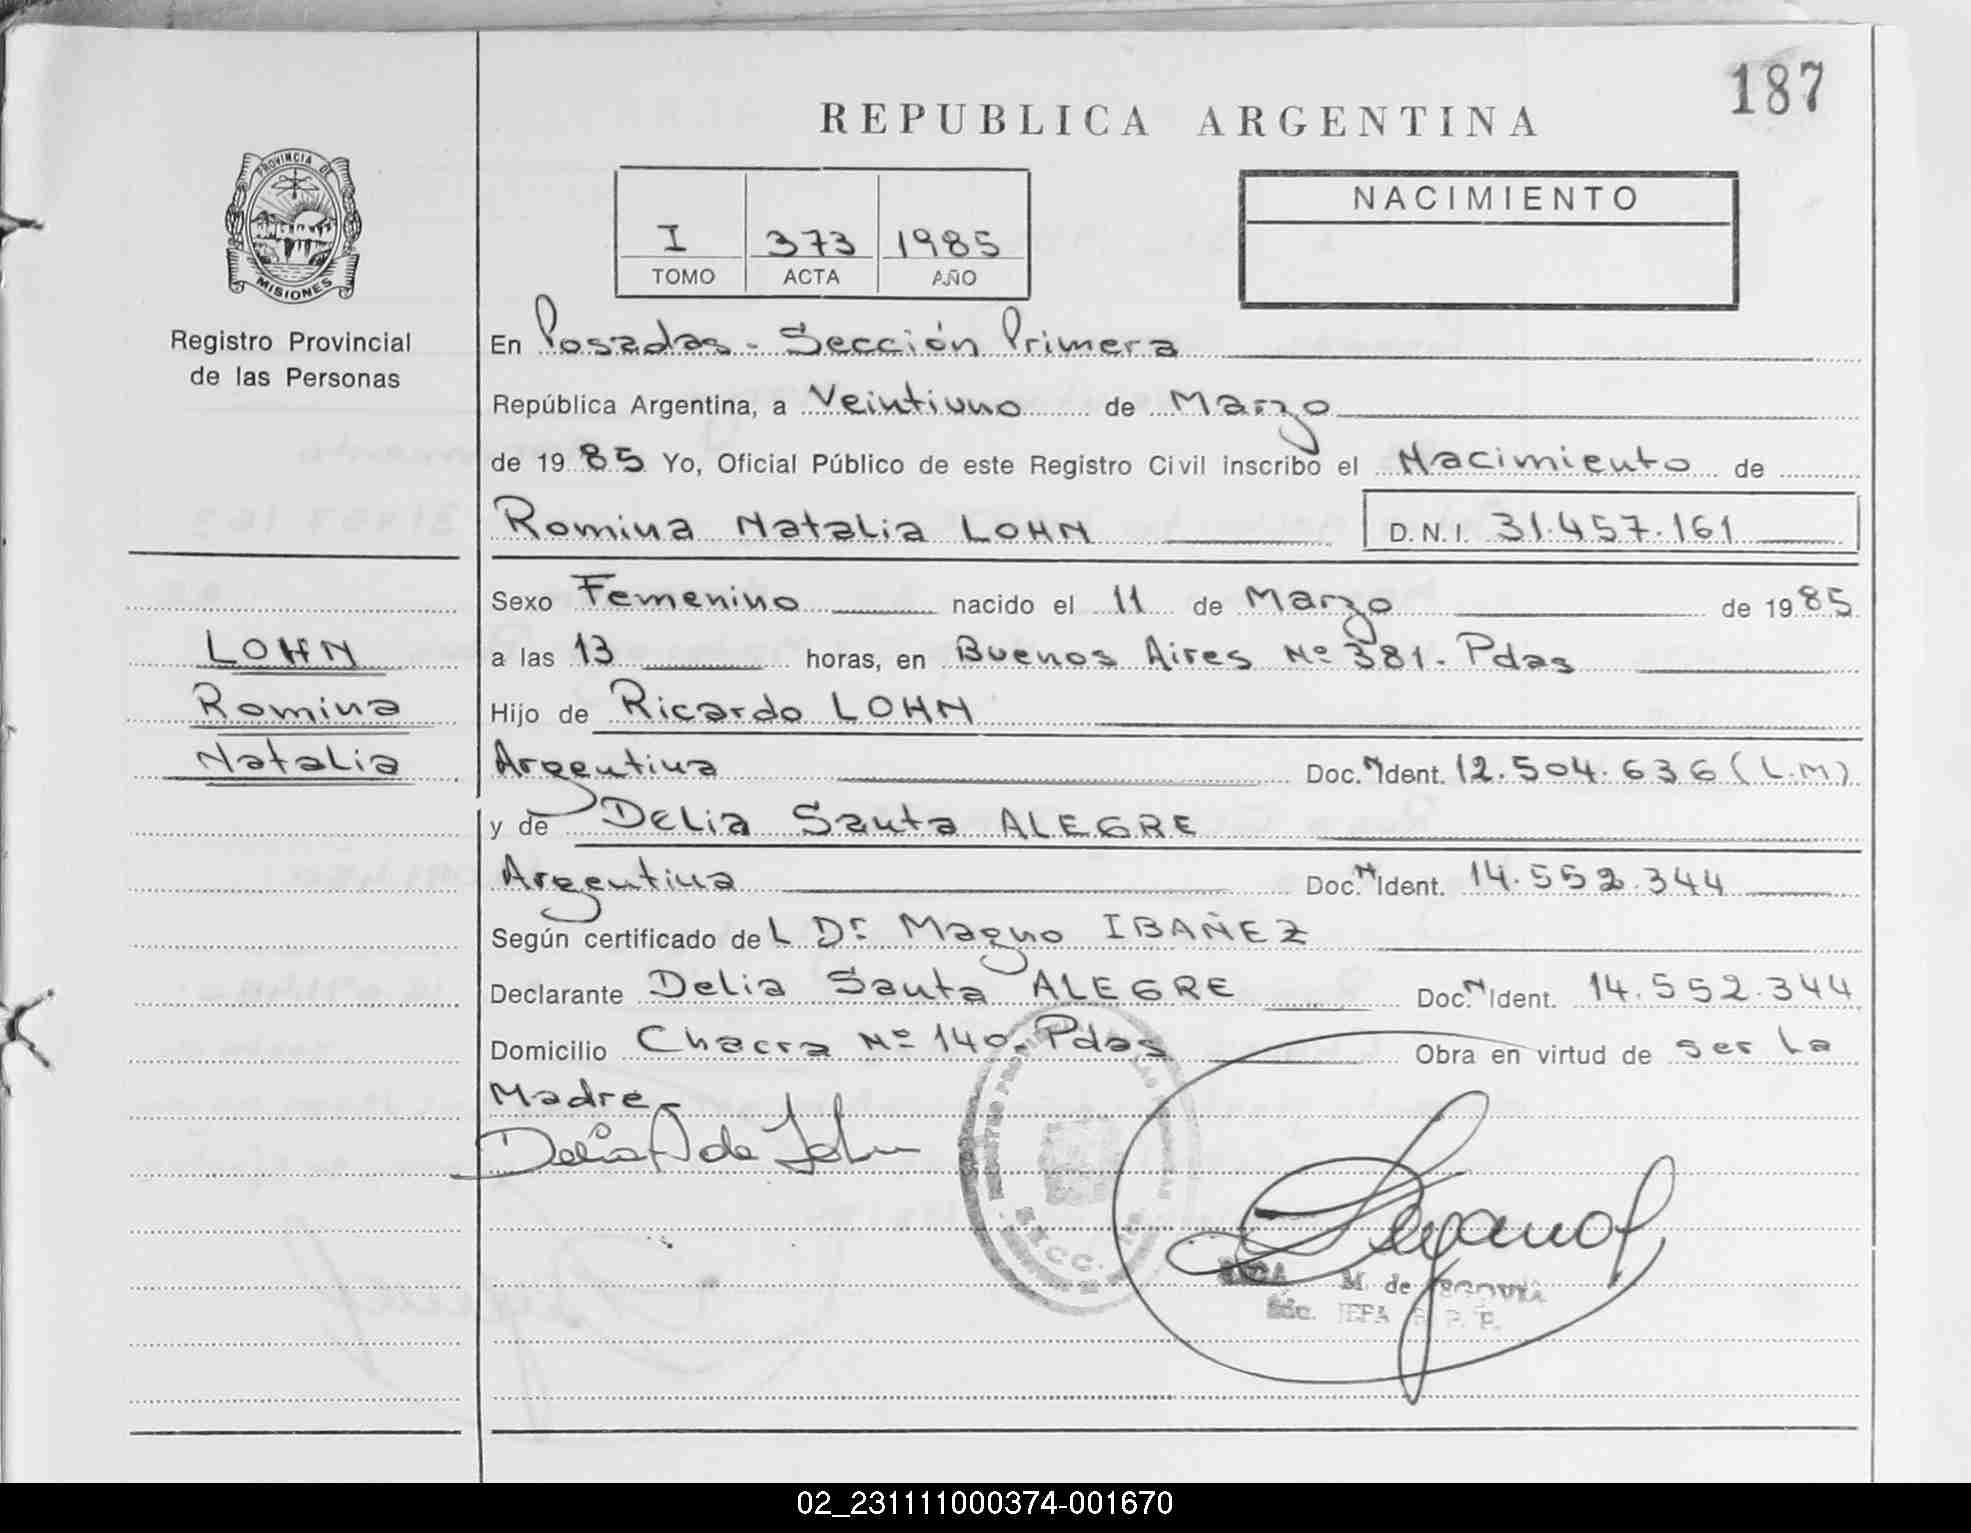 187
REPUBLICA ARGENTINA
PROVINCIA DE
MISIONES
Registro Provincial
de las Personas
I 373 1985
TOMO ACTA AÑO
NACIMIENTO
En Posadas - Sección Primera
República Argentina, a Veintiuno de Marzo
de 1985 Yo, Oficial Público de este Registro Civil inscribo el Nacimiento de
Romina Natalia LOHN D.N.I. 31.457.161
Sexo Femenino nacido el 11 de Marzo de 1985
LOHN
Romina
Natalia
a las 13 horas, en Buenos Aires Nº 381. Pdas
Hijo de Ricardo LOHN
Argentina Doc. N Ident. 12.504.636 (L.M)
y de Delia Santa ALEGRE
Argentina Doc. N Ident. 14.552.344
Según certificado del Dr. Magno IBAÑEZ
Declarante Delia Santa ALEGRE Doc. N Ident. 14.552.344
Domicilio Chacra Nº 140. Pdas Obra en virtud de ser la
Madre-
Delia A de Lohn
SECC. 1ª
M. de SEGOVIA
JEFA R. P. P.
02_231111000374-001670